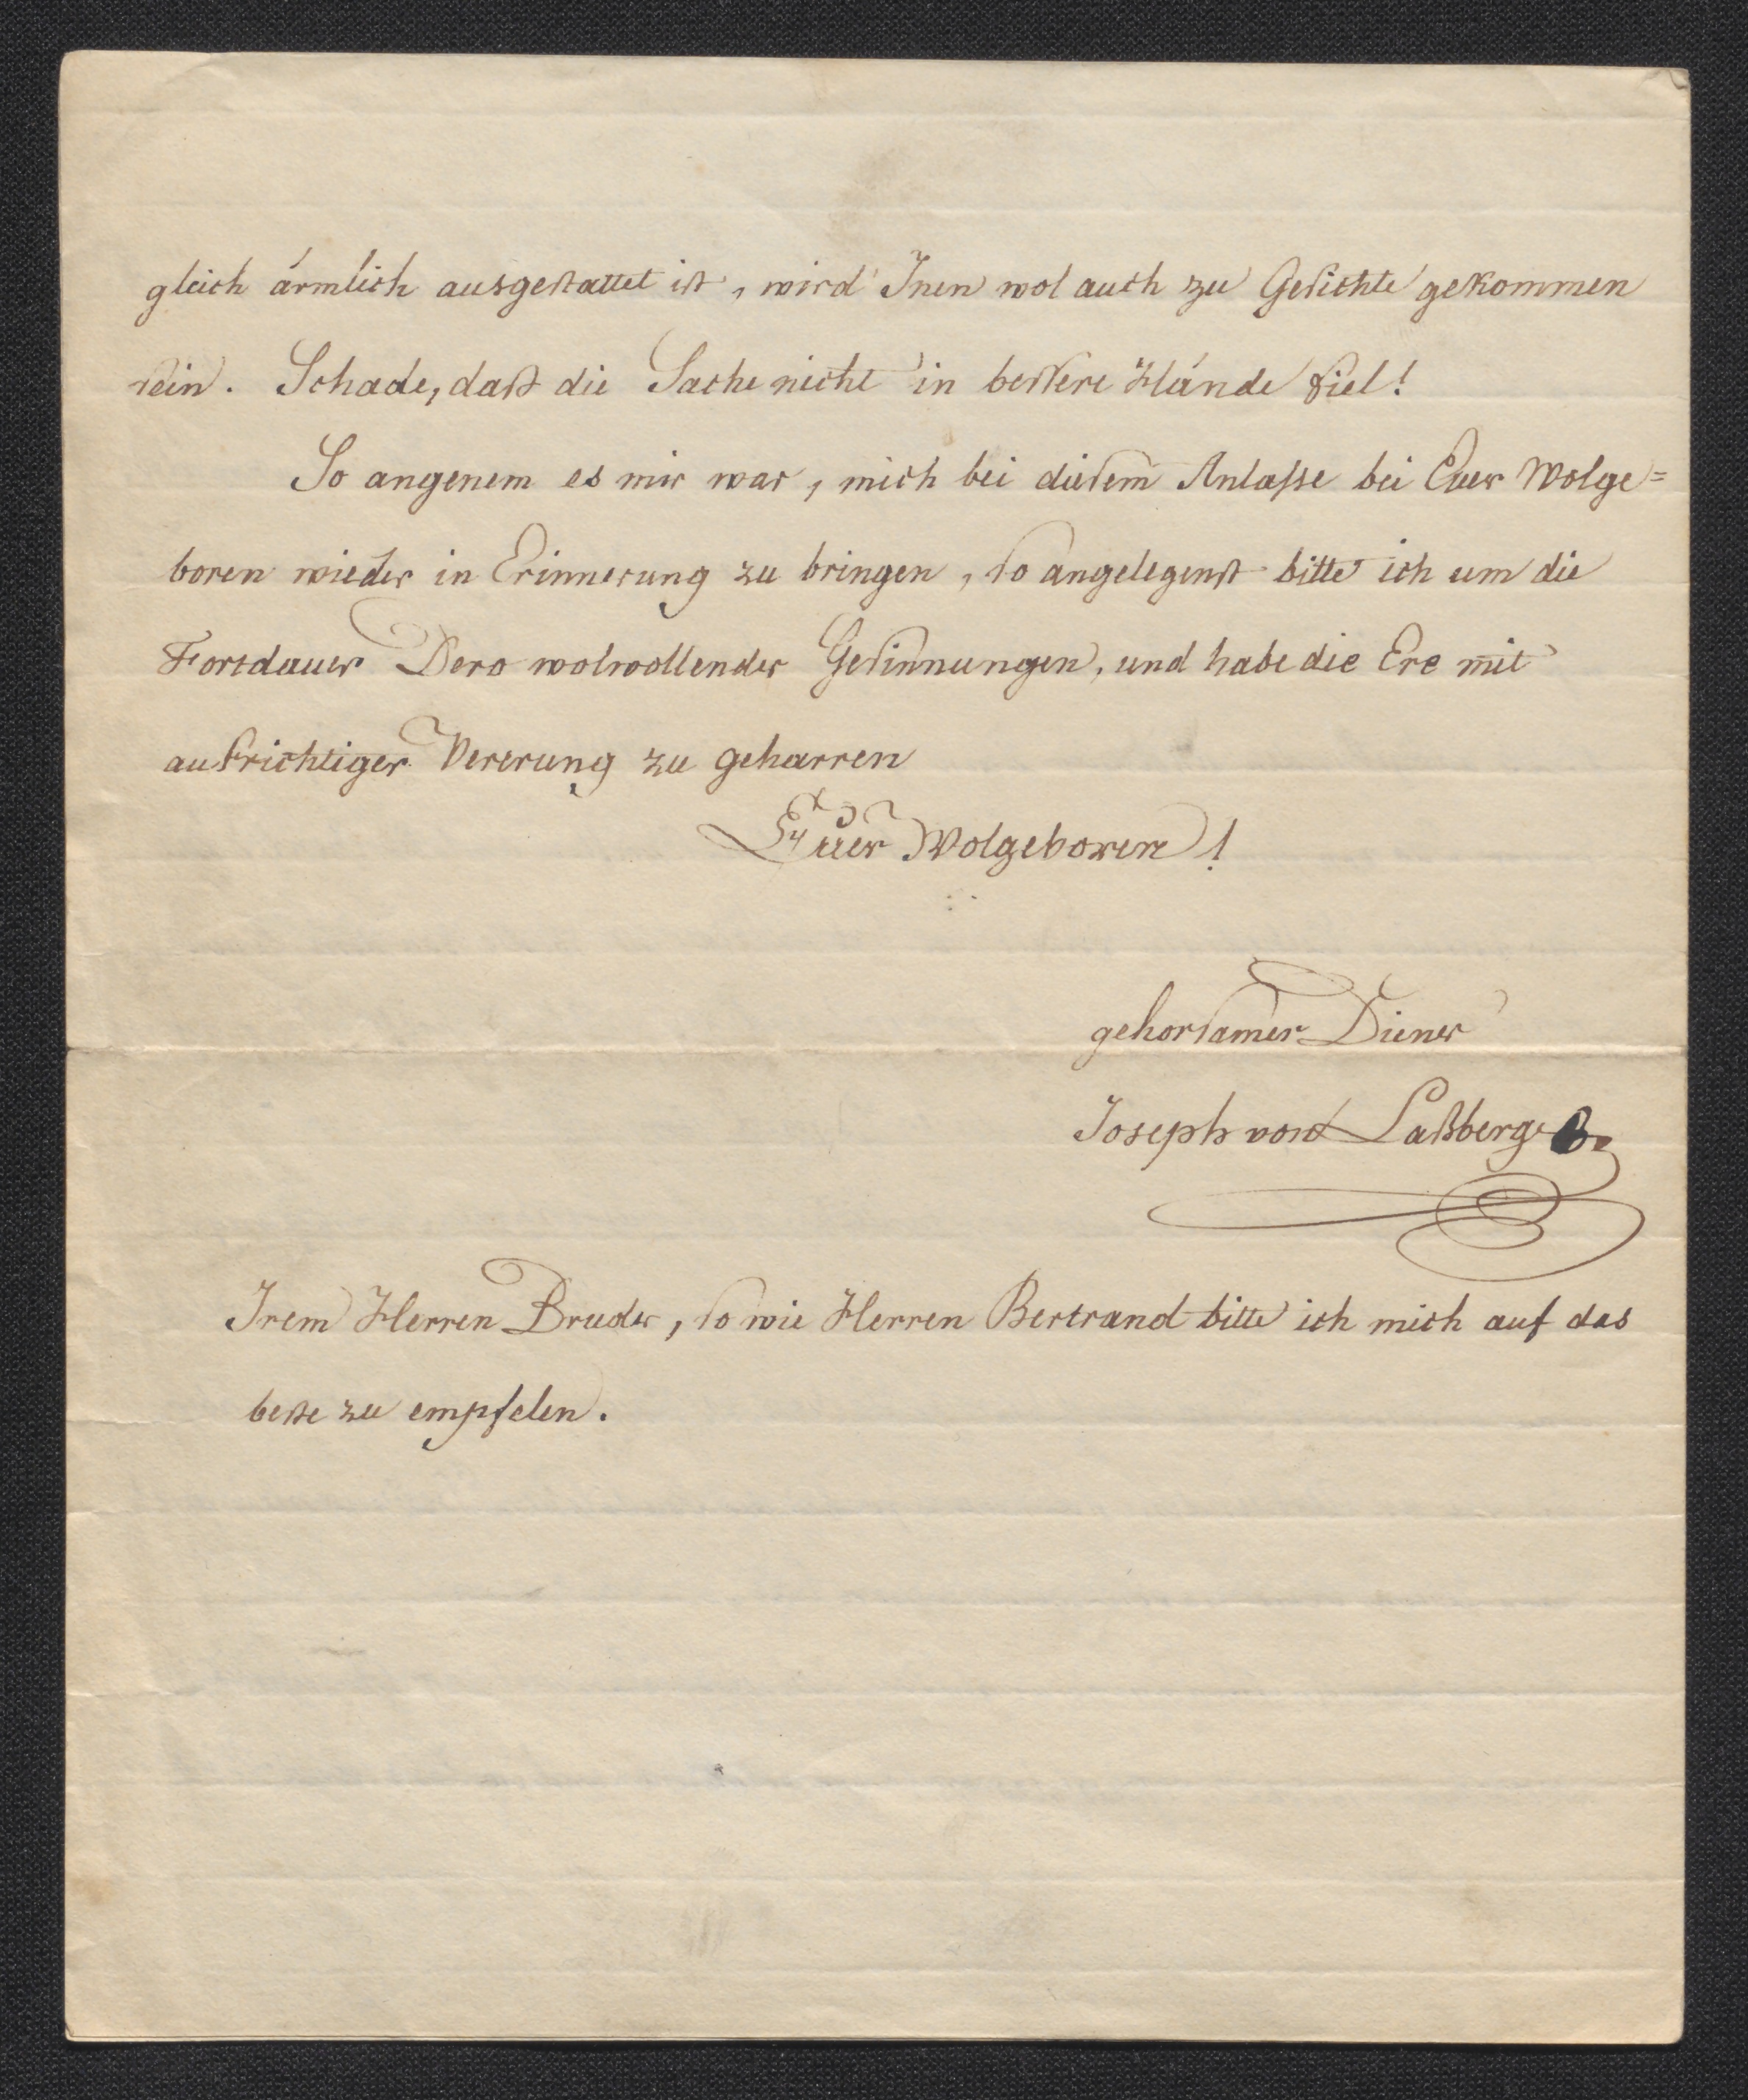 gleich ärmlich ausgestattet ist, wird Inen wol auch zu Gesichte gekommen
sein. Schade, daß die Sache nicht in bessere Hände fiel!
So angenem es mir war, mich bei diesem Anlasse bei Euer Wolge=
boren wieder in Erinnerung zu bringen, so angelegenst bitte ich um die
Fortdauer Dero wolwollender Gesinnungen, und habe die Ere mit
aufrichtiger Vererung zu geharren
Euer Wolgeboren!
gehorsamer Diener
Joseph von Laßberg
Irem Herren Bruder, so wie Herren Bertrand bitte ich mich auf das
beste zu empfelen.